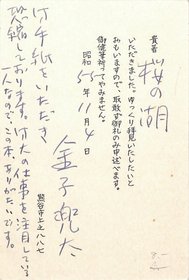 貴著
桜の湖
いただきました。ゆっくり拝見いたしたいと
おもいますので、取敢ず御礼のみ申述べます。
御健筆祈ってやみません。
昭和55年11月4日
金子兜太
熊谷市上之八八七
お手紙をいただき
恐縮しております。貴大の仕事を注目している
一人なので、この本、ありがたいです。